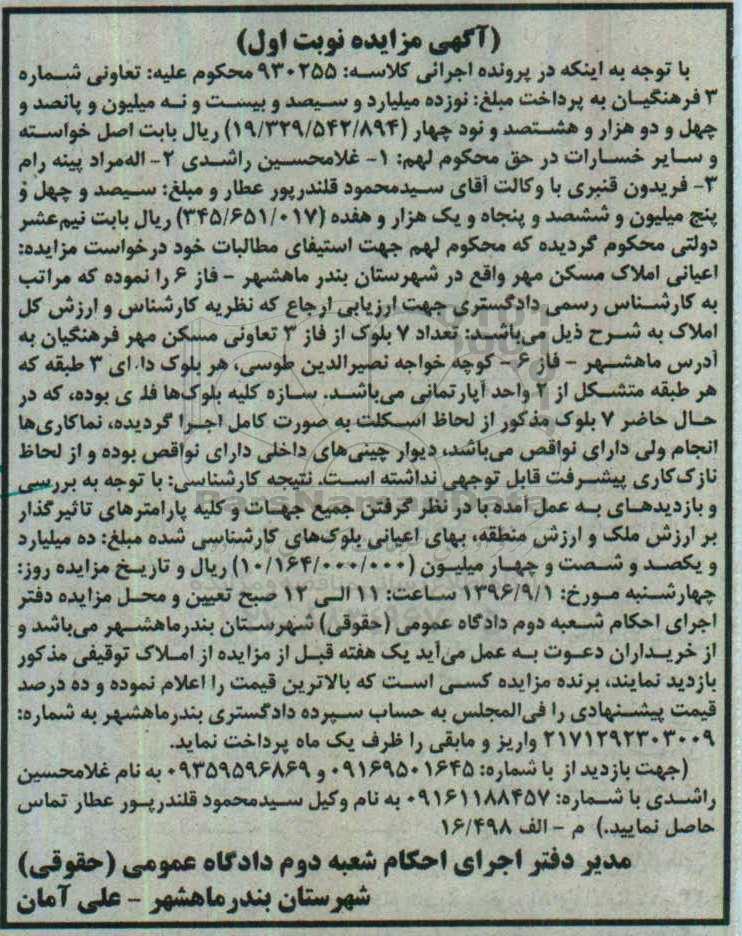 (آگهی مزایده نوبت اول)
با توجه به اینکه در پرونده اجرائی کلاسه: ۹۳۰۲۵۵ محکوم علیه: تعاونی شماره
۳ فرهنگیان به پرداخت مبلغ: نوزده میلیارد و سیصد و بیست و نه میلیون و پانصد و
چهل و دو هزار و هشتصد و نود چهار (۱۹/۳۲۹/۵۴۲/۸۹۴) ریال بابت اصل خواسته
و سایر خسارات در حق محکوم لهم: ۱- غلامحسین راشدی ۲- اله‌مراد پینه رام
۳- فریدون قنبری با وکالت آقای سیدمحمود قلندرپور عطار و مبلغ: سیصد و چهل و
پنج میلیون و ششصد و پنجاه و یک هزار و هفده (۳۴۵/۶۵۱/۰۱۷) ریال بابت نیم‌عشر
دولتی محکوم گردیده که محکوم لهم جهت استیفای مطالبات خود درخواست مزایده:
اعیانی املاک مسکن مهر واقع در شهرستان بندر ماهشهر - فاز ۶ را نموده که مراتب
به کارشناس رسمی دادگستری جهت ارزیابی ارجاع که نظریه کارشناس و ارزش کل
املاک به شرح ذیل می‌باشد: تعداد ۷ بلوک از فاز ۳ تعاونی مسکن مهر فرهنگیان به
آدرس ماهشهر - فاز ۶ - کوچه خواجه نصیرالدین طوسی، هر بلوک دارای ۳ طبقه که
هر طبقه متشکل از ۲ واحد آپارتمانی می‌باشد. سازه کلیه بلوک‌ها فلزی بوده، که در
حال حاضر ۷ بلوک مذکور از لحاظ اسکلت به صورت کامل اجرا گردیده، نماکاری‌ها
انجام ولی دارای نواقص می‌باشد، دیوار چینی‌های داخلی دارای نواقص بوده و از لحاظ
نازک‌کاری پیشرفت قابل توجهی نداشته است. نتیجه کارشناسی: با توجه به بررسی
و بازدیدهای به عمل آمده با در نظر گرفتن جمیع جهات و کلیه پارامترهای تاثیرگذار
بر ارزش ملک و ارزش منطقه، بهای اعیانی بلوک‌های کارشناسی شده مبلغ: ده میلیارد
و یکصد و شصت و چهار میلیون (۱۰/۱۶۴/۰۰۰/۰۰۰) ریال و تاریخ مزایده روز:
چهارشنبه مورخ: ۱۳۹۶/۹/۱ ساعت: ۱۱ الی ۱۲ صبح تعیین و محل مزایده دفتر
اجرای احکام شعبه دوم دادگاه عمومی (حقوقی) شهرستان بندرماهشهر می‌باشد و
از خریداران دعوت به عمل می‌آید یک هفته قبل از مزایده از املاک توقیفی مذکور
بازدید نمایند، برنده مزایده کسی است که بالاترین قیمت را اعلام نموده و ده درصد
قیمت پیشنهادی را فی‌المجلس به حساب سپرده دادگستری بندرماهشهر به شماره:
۲۱۷۱۲۹۲۳۰۳۰۰۹ واریز و مابقی را ظرف یک ماه پرداخت نماید.
(جهت بازدید از با شماره: ۰۹۱۶۹۵۰۱۶۴۵ و ۰۹۳۵۹۵۹۶۸۶۹ به نام غلامحسین
راشدی با شماره: ۰۹۱۶۱۱۸۸۴۵۷ به نام وکیل سیدمحمود قلندرپور عطار تماس
حاصل نمایید.) م - الف ۱۶/۴۹۸
مدیر دفتر اجرای احکام شعبه دوم دادگاه عمومی (حقوقی)
شهرستان بندرماهشهر - علی آمان
ParsNamadData